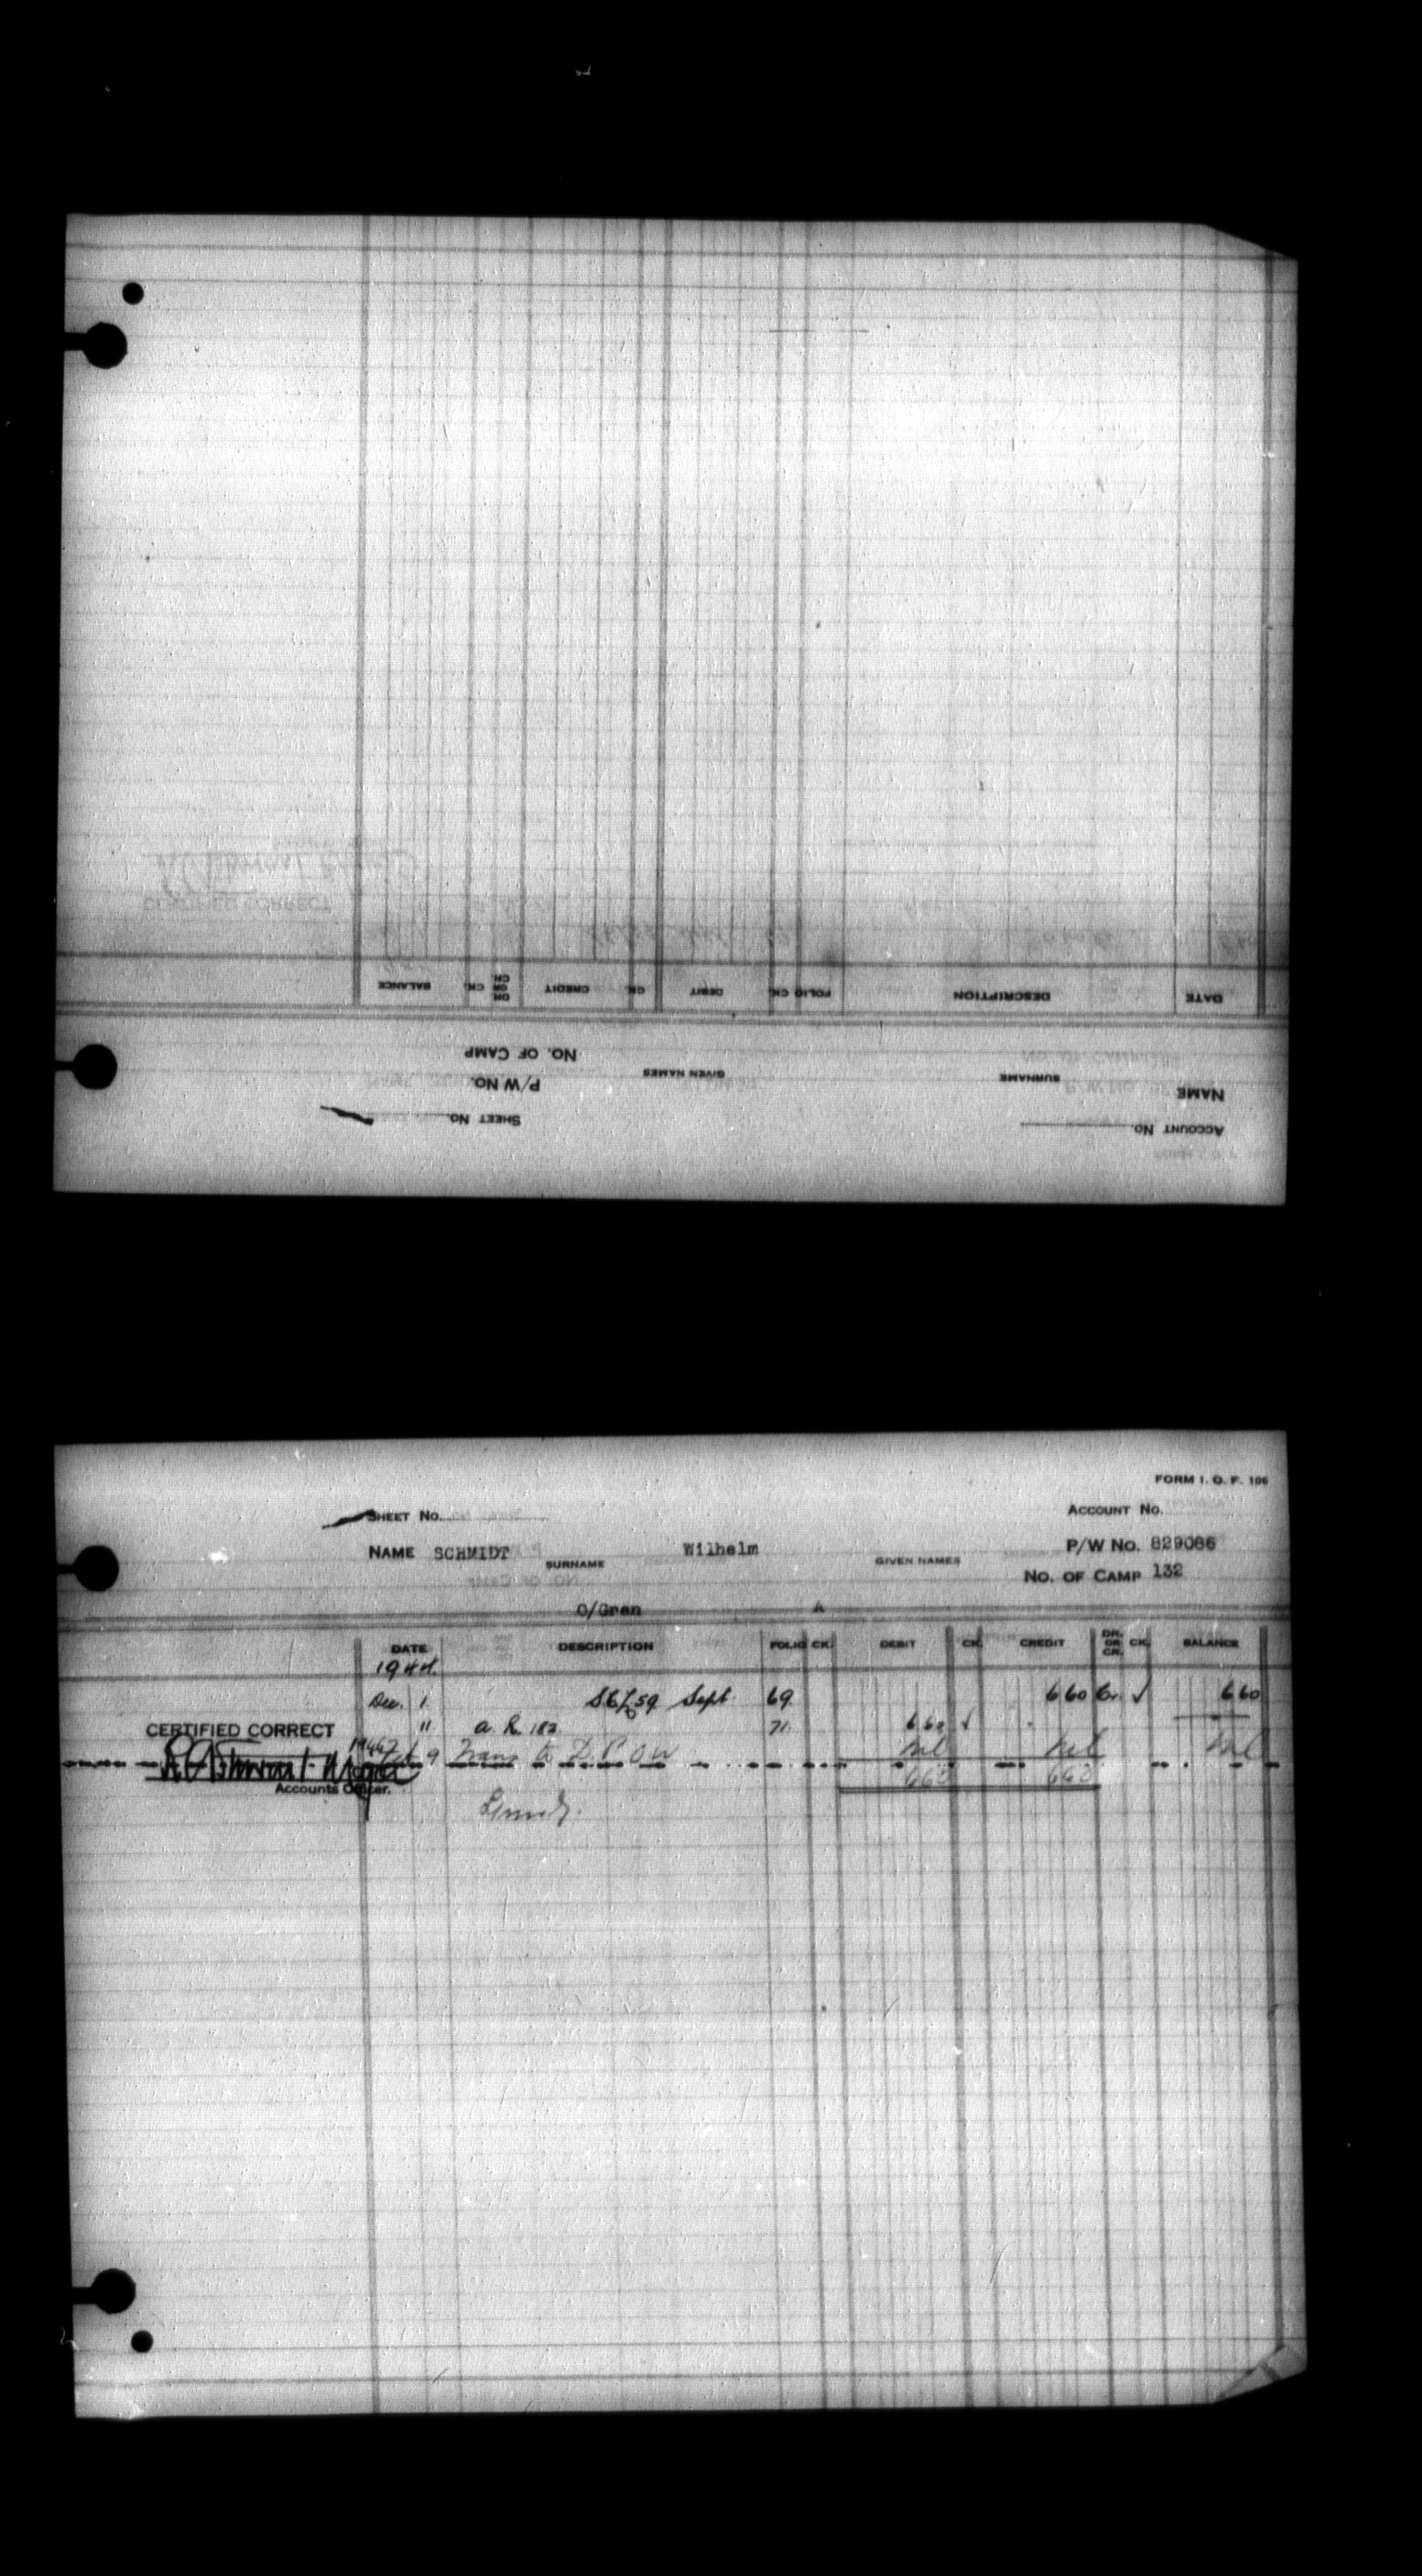 ACCOUNT NO.
SHEET NO.
NAME SURNAME GIVEN NAMES P/W NO.
NO. OF CAMP
DATE DESCRIPTION FOLIO CK. DEBIT CK. CREDIT DR. OR CR. CK. BALANCE
FORM I. O. F. 106
SHEET NO. ACCOUNT NO.
NAME SCHMIDT SURNAME Wilhelm GIVEN NAMES P/W NO. 829086
NO. OF CAMP 132
O/Gren A
DATE DESCRIPTION FOLIO CK. DEBIT CK. CREDIT DR. OR CR. CK. BALANCE
1944
Dec. 1 Sept. 69 6 60 Cr. ✓ 6 60
CERTIFIED CORRECT " a. R. 182 71 6 60 ✓
9 Trans to D. P. O W Nil Nil Nil
660 660
Accounts Officer.